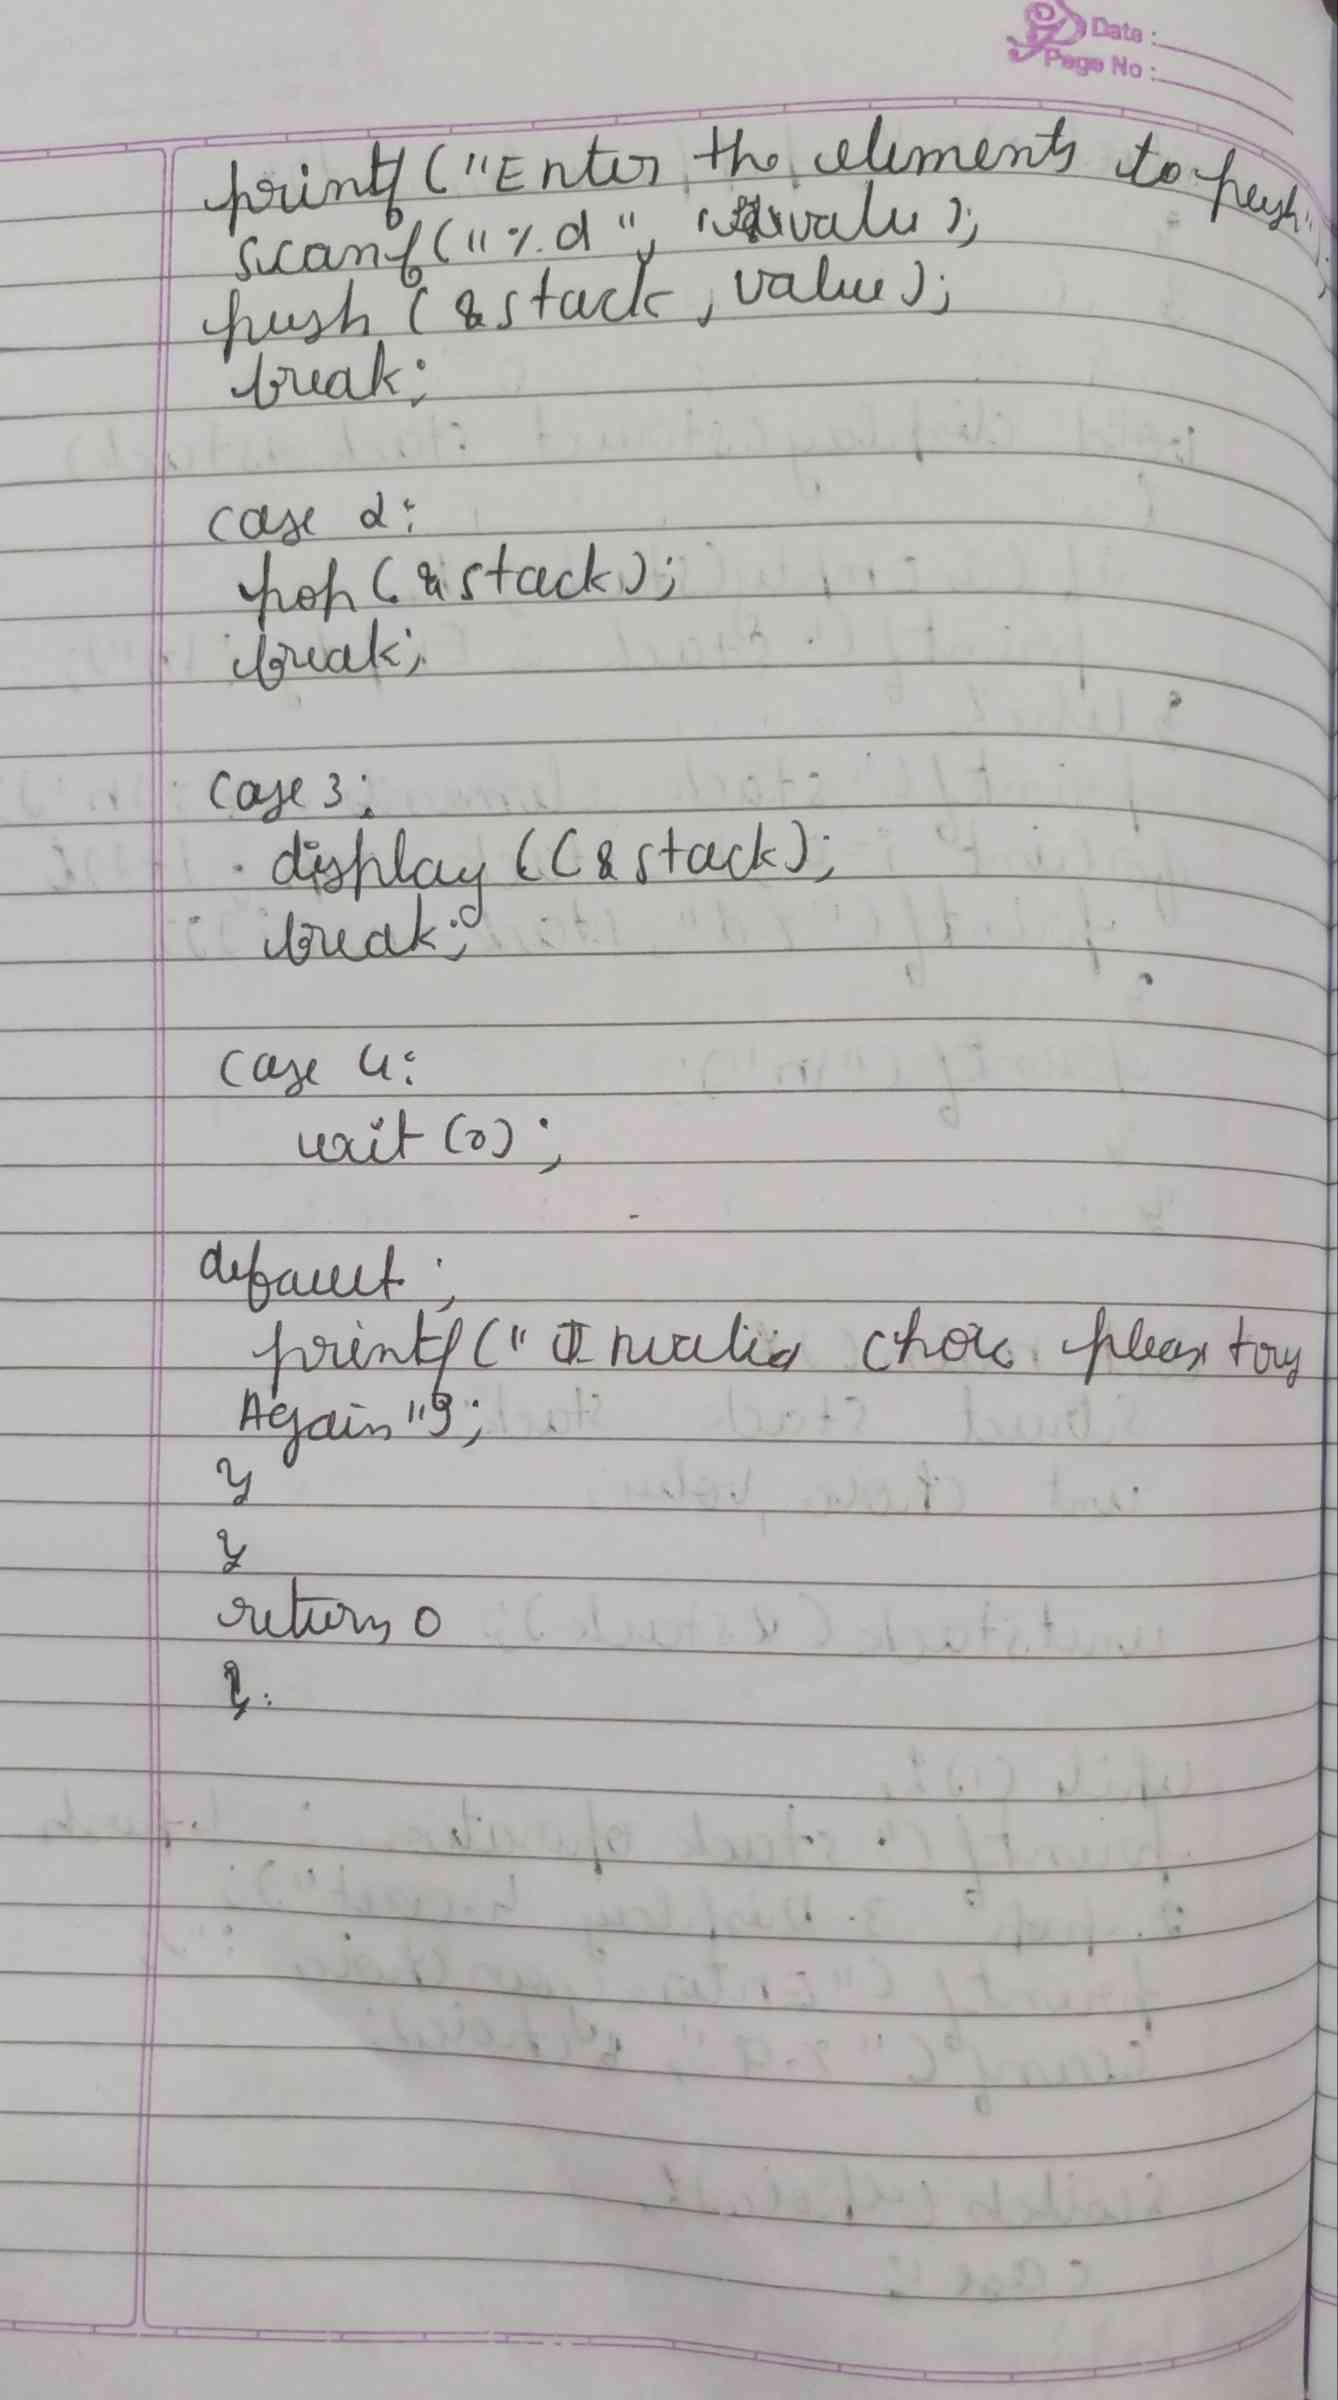 Date :
Page No :
printf ("Enter the elements to push");
scanf ("%d", &value);
push (&stack, value);
break;
case 2:
pop (&stack);
break;
case 3:
display ((&stack);
break;
case 4:
exit (0);
default ;
printf (" Invalid choic please try
Again ");
}
}
return 0
}.